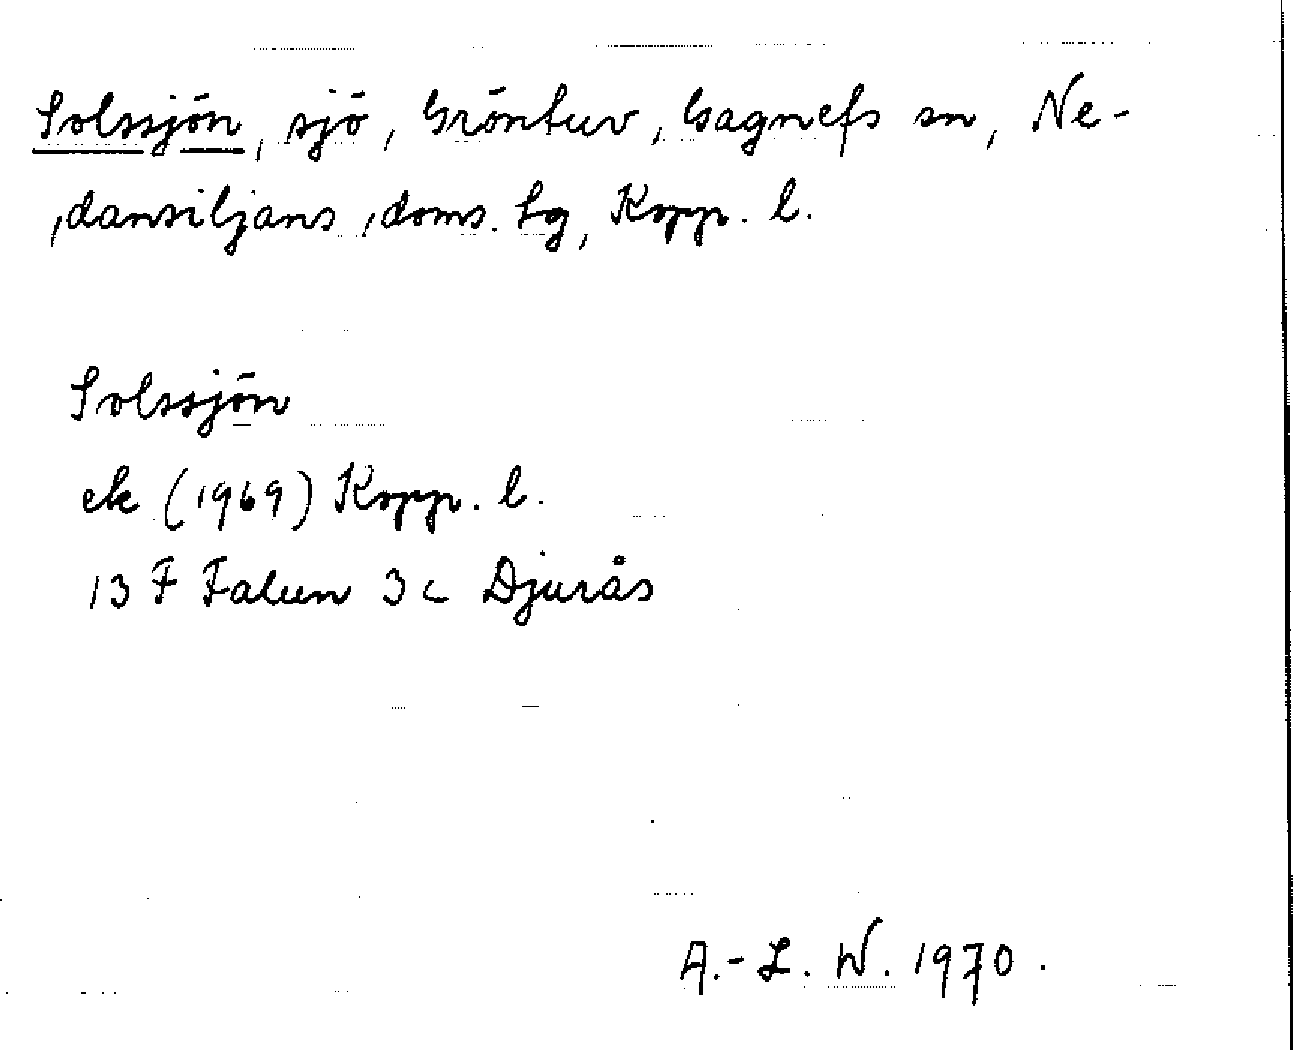 Solssjön, sjö, Gröntuv, Gagnefs sn, Ne-
dansiljans doms. hg, Kopp. l.
Solssjön
ek (1969) Kopp. l.
13 F Falun 3c Djurås
A.-L. W. 1970.